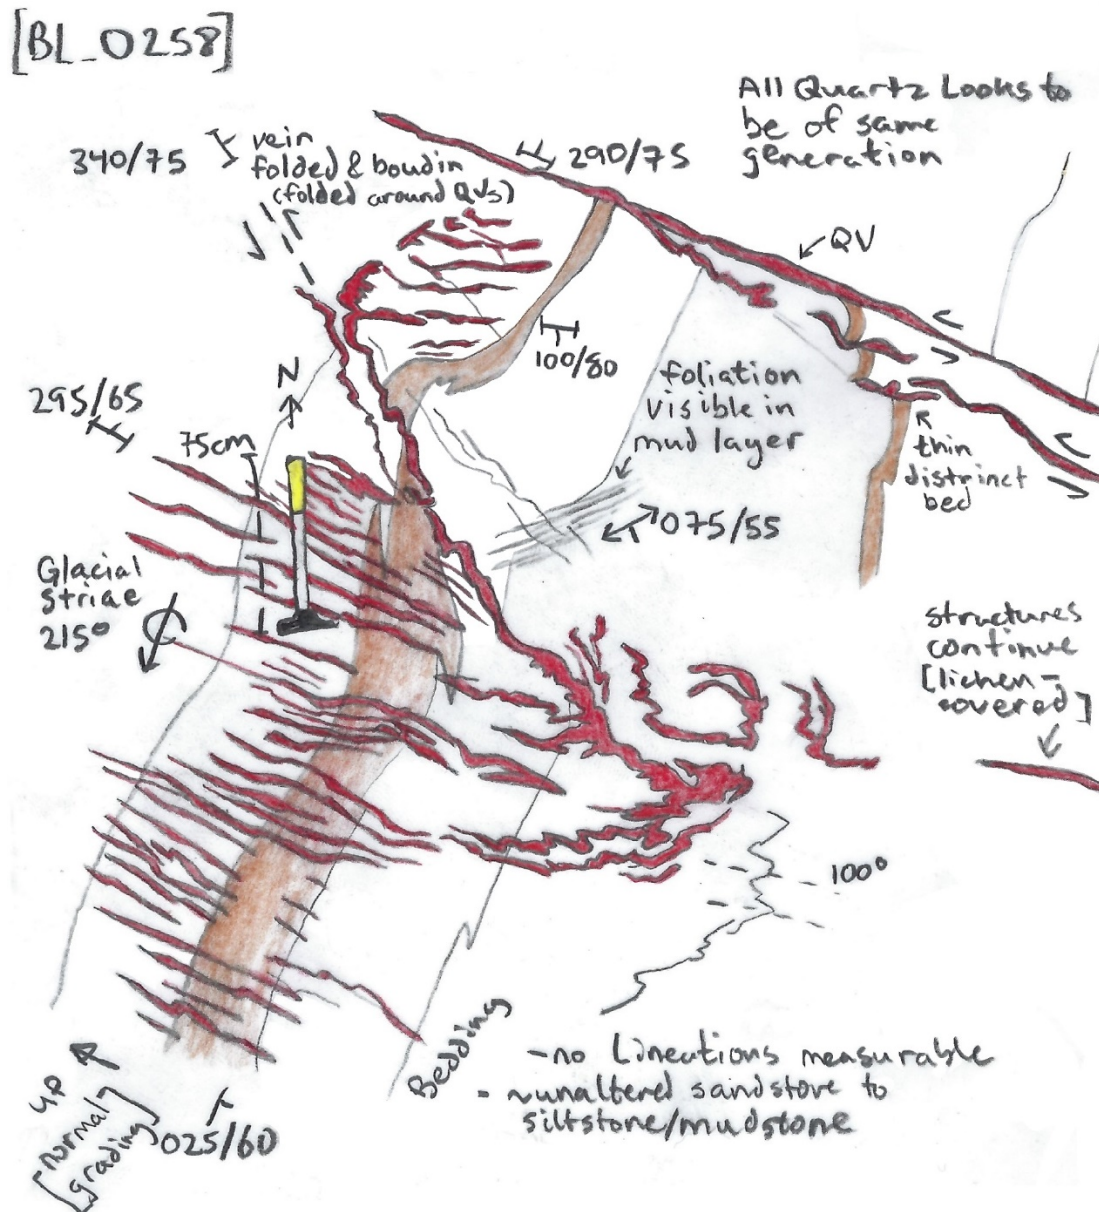 [BL_0258]
All Quartz Looks to
be of same
generation
340/75
vein
folded & boudin
(folded around QVs)
290/75
QV
100/80
295/65
N
75cm
foliation
visible in
mud layer
thin
distrinct
bed
075/55
Glacial
striae
215°
structures
continue
[lichen-
covered]
100°
Bedding
-no Lineations measurable
- ~unaltered sandstone to
siltstone/mudstone
UP
[normal
grading]
025/60